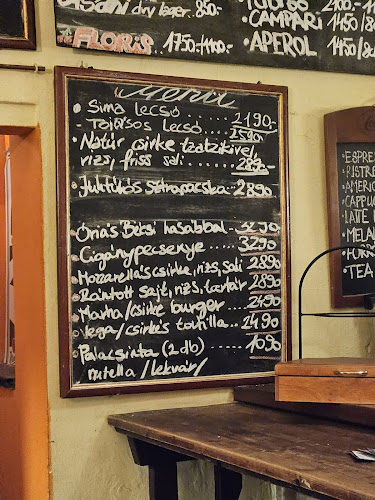 dry lager. 850.-
FLORIS 1750/1100.-
CAMPARI 1450/8
APEROL 1450/8
Menü
Sima lecsó ...... 2190-
- Tojásos lecsó .... 2590-
Natúr csirke tzatzikivel,
rizs, friss sali ....... 2890.-
Juhtúrós sztrapacska... 2890
Óriás Bécsi hasábbal... 3290
Cigánypecsenye ..... 3290
Mozzarellás csirke, rizs, sali 2890
Rántott sajt, rizs, tartár 2890
Marha/csirke burger .... 2490
Vega/csirkés tortilla... 2490
Palacsinta (2 db) ..... 1090
nutella /lekvár/
ESPRE
RISTRE
AMERIC
CAPPUC
LATTE
MELAN
FORRÓ
TEA